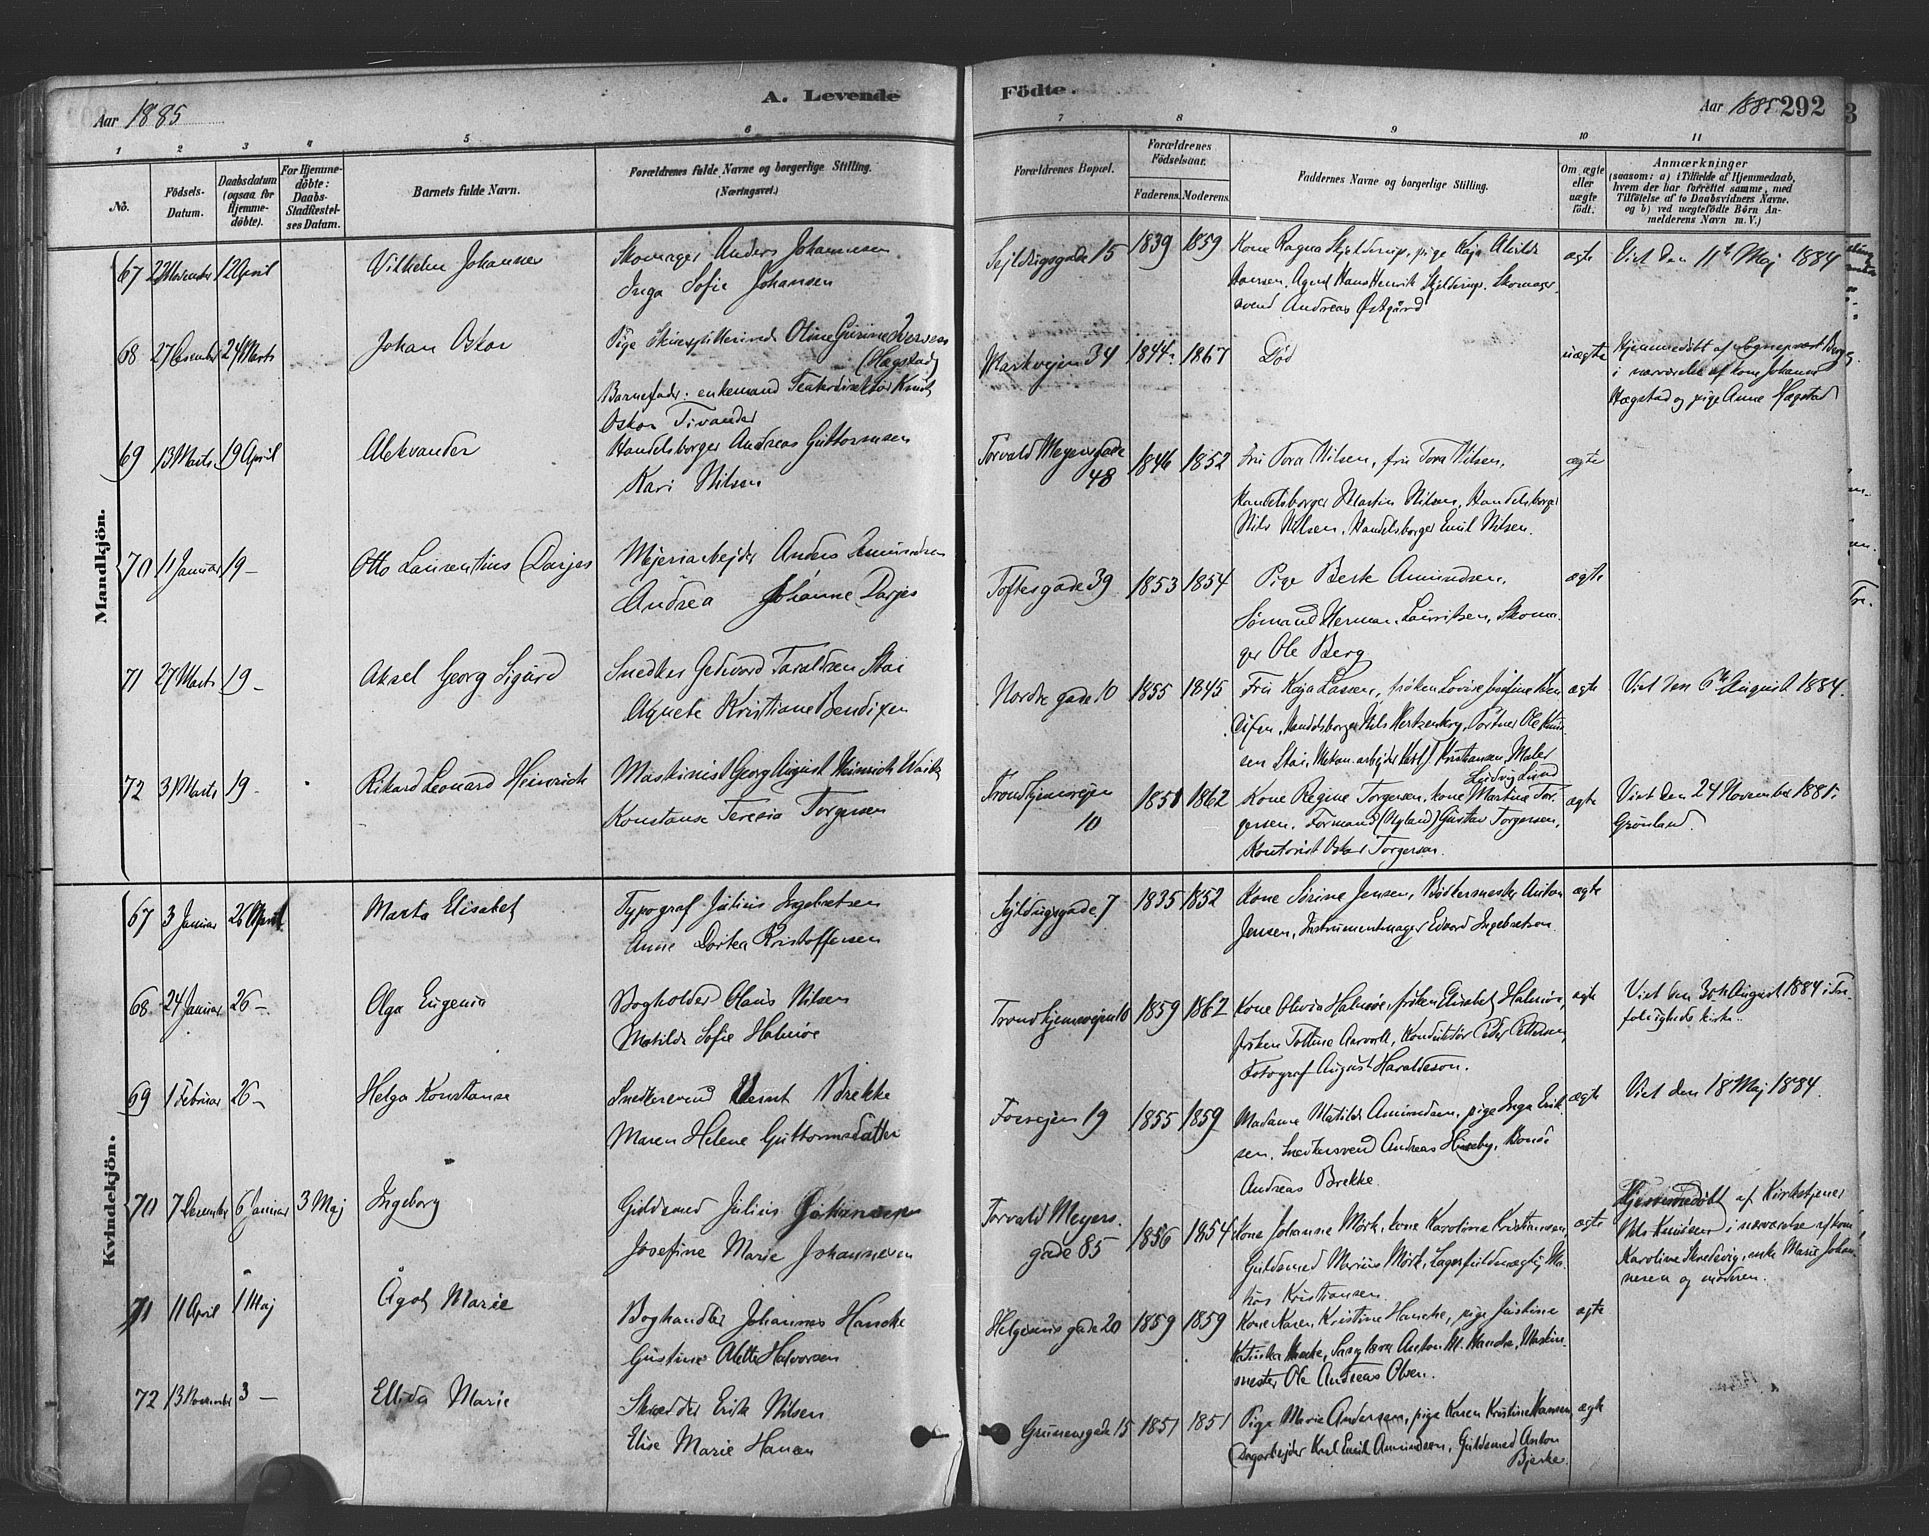 Aar 1885
A. Levende
Födte.
Aar 1885 292
3
1 2 3 4 5 6 7 8 9 10 11
No.
Födsels-
Datum.
Daabsdatum
(ogsaa for
Hjemme-
döbte).
For Hjemme-
döbte:
Daabs-
Stadfæstel-
ses Datum.
Barnets fulde Navn.
Forældrenes fulde Navne og borgerlige Stilling.
(Næringsvei.)
Forældrenes Bopæl.
Forældrenes
Födselsaar.
Faderens. Moderens.
Faddernes Navne og borgerlige Stilling.
Om ægte
eller
uægte
födt.
Anmærkninger
(saasom: a) i Tilfælde af Hjemmedaab,
hvem der har forrettet samme, med
Tilföielse af to Daabsvidners Navne,
og b) ved uægtefödte Börn An-
melderens Navn m. V.)
Mandkjön.
67 12 April Vilhelm Johannes
Skomager Anders Johannesen
Inga Sofie Johansen
Sejldugsgade 15 1839 1859
Kone Ragna Skjeldrup, pige Kaja Alvilde
Hansen, Agent Hans Henrik Skjeldrup, Skomager
svend Andreas Østgård
ægte
Viet den 11te Maj 1884
68 27 Desember 24 Marts Johan Oskar
Pige Oline Gurine Iversen
(Hagstad)
Barnefader: enkemand Teaterdirektør Knut
Oskar Tivander
Markvejen 34 1844 1867
Død
uægte
Hjemmedøbt af
i nærværelse af kone Johanne
Hagstad og pige Anne Hagstad
69 13 Marts 19 April Aleksander
Handelsborger Andreas Guttormsen
Kari Nilsen
Torvald Meyersgade
48
1846 1852
Fru Tora Nilsen, fru Tora Nilsen,
Handelsborger Martin Nilsen, Handelsborger
Nils Nilsen, Handelsborger Emil Nilsen.
ægte
70 11 Januar 19 – Otto Laurentius Darjes
Mejeriarbejder Anders Amundsen
Andrea Johanne Darjes
Toftesgade 39 1853 1854
Pige Berte Amundsen,
Sømand Herman Lauritsen, Skoma-
ger Ole Berg
ægte
71 27 Marts 19 – Aksel Georg Sigurd
Snedker Gedevard Taraldsen Stai
Agnete Kristiane Bendixen
Nordre gade 10 1855 1845
Fru Kaja Lassen, frøken Lovise Ben
dixen, Handelsborger Nils Hertzenberg, Portner Ole Knut
sen Stai, Mekan. arbejder Kristiansen, Maler
Ludvig Lund
ægte
Viet den 6te August 1884.
72 3 Marts 19 – Rikard Leonard Heinrich
Maskinist Georg August Heinrich
Konstanse Teresia Torgersen
Trondhjemsvejen
10
1851 1862
Kone Regine Torgersen, kone Martine Tor-
gersen, Formand (Nyland) Gustav Torgersen,
Kontorist Oskar Torgersen.
ægte
Viet den 24 November 1881,
Grønland.
Kvindekjön.
67 3 Januar 26 April Marta Elisabet
Typograf Julius Ingebretsen
Anne Dortea Kristoffersen
Sejldugsgade 7 1835 1852
Kone Sørine Jensen, Bødkermester Anton
Jensen, Instrumentmager Edvard Ingebretsen
ægte
68 24 Januar 26 – Olga Eugenia
Bogholder Olaus Nilsen
Matilde Sofie Halmøe
Trondhjemsvejen 10 1859 1862
Kone Olivia Halmøe, frøken Elisabet Halmøe,
frøken Tolline Aarvold, Konduktør Peder Pettersen,
Fotograf August Haraldsson.
ægte
Viet den 30te August 1884 i Tre-
foldigheds kirke.
69 1 Februar 26 – Helga Konstanse
Snedkersvend Bernt Brekke
Maren Helene Guttormsdatter
Fossvejen 19 1855 1859
Madame Matilde Amundsen, pige Inga Erik
sen, Snedkersvend Andreas Huseby,
Andreas Brekke
ægte
Viet den 18 Maj 1884.
70 7 Desember 6 Januar 3 Maj Ingeborg
Guldsmed Julius Johannesen
Josefine Marie Johannesen
Torvald Meyers
gade 85
1856 1854
Kone Johanne Mørk, kone Karoline Kristiansen,
Guldsmed Marius Mørk, Lagerfuldmægtig Ma-
kus Kristiansen
ægte
Hjemmedøbt af Kirketjener
Nils Knudsen i nærværelse af kone
Karoline Skredsvig, enke Marie Johan-
nesen og moderen.
71 11 April 1 Maj Ågot Marie
Boghandler Johannes Hancke
Gustine Alette Halvorsen
Helgesens gade 20 1859 1859
Kone Karen Kristine Hancke, pige Justine
Katinka Hancke, Sanglærer Anton M. Hancke, Maskin
mester Ole Andreas Olsen.
ægte
72 13 November 3 – Ellida Marie
Skrædder Erik Nilsen
Elise Marie Hansen
Grünersgade 15 1851 1851
Pige Marie Andersen, pige Karen Kristine Hansen,
Dagarbejder Karl Emil Amundsen, Guldsmed Anton
Bjerke.
ægte